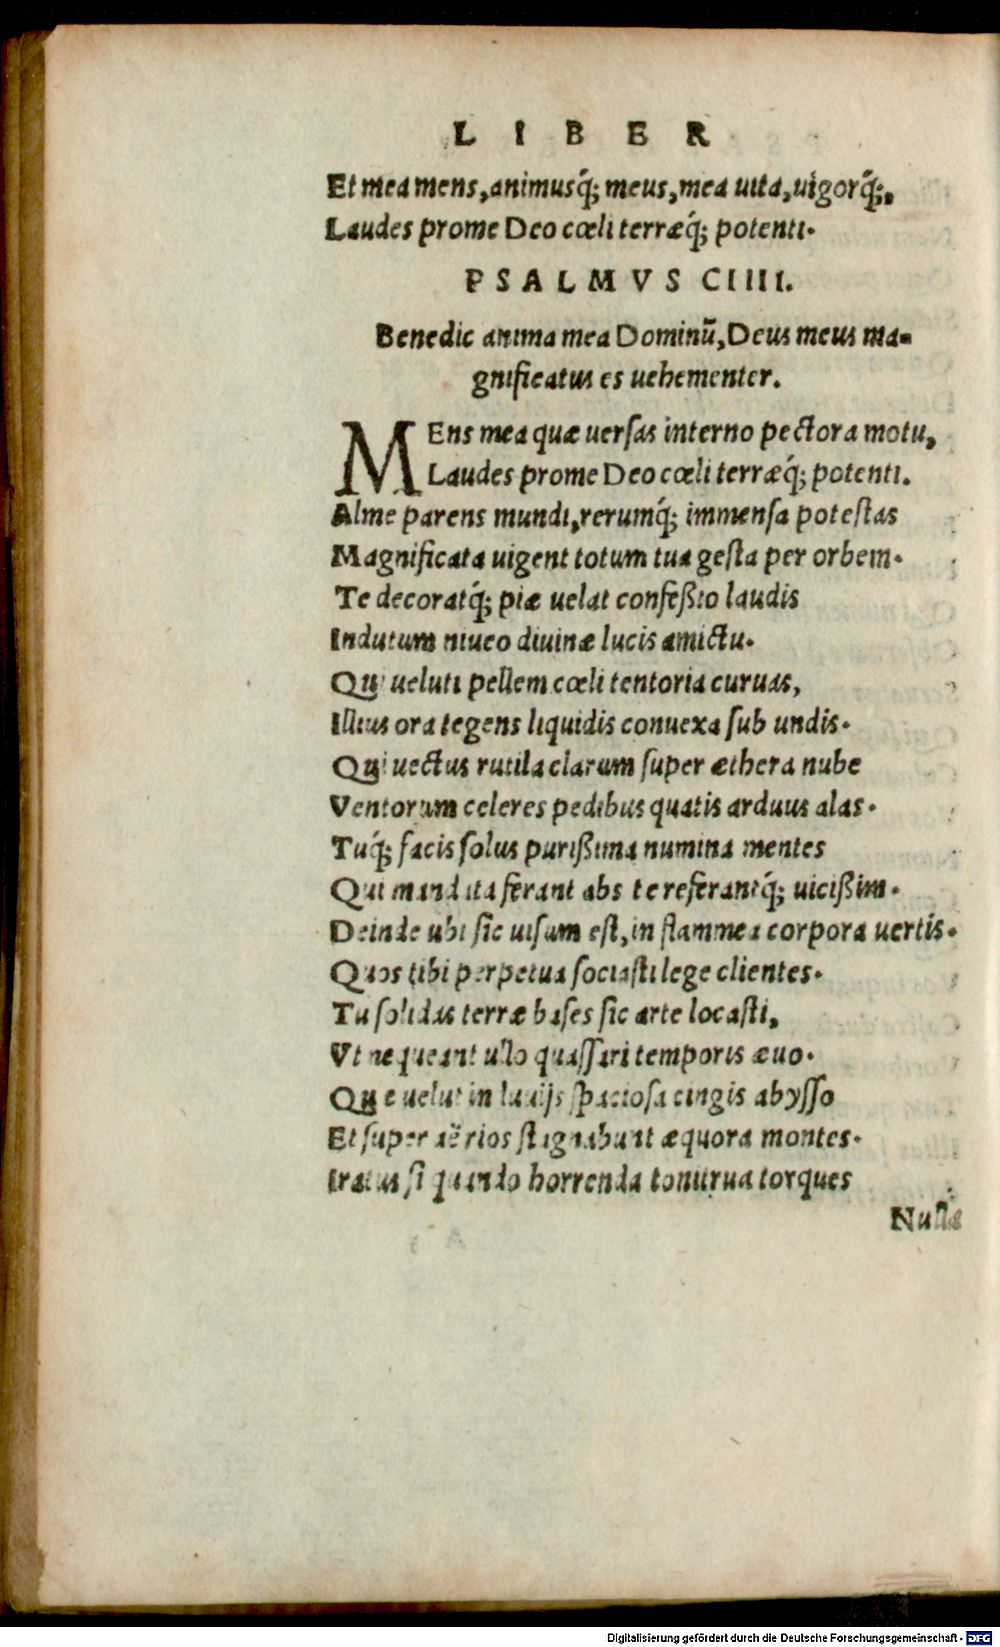 LIBER
Et mea mens, animusq́; meus, mea uita, uigorq́;,
Laudes prome Deo cœli terræq́; potenti.
PSALMVS CIIII.
Benedic anima mea Dominū, Deus meus ma-
gnificatus es uehementer.
MEns mea quæ uersas interno pectora motu,
Laudes prome Deo cœli terræq́; potenti.
Alme parens mundi, rerumq́; immensa potestas
Magnificata uigent totum tua gesta per orbem.
Te decoratq́; piæ uelat confeßio laudis
Indutum niueo diuinæ lucis amictu.
Qui ueluti pellem cœli tentoria curuas,
Illius ora tegens liquidis conuexa sub undis.
Qui uectus rutila clarum super æthera nube
Ventorum celeres pedibus quatis arduus alas.
Tuq́; facis solus purißima numina mentes
Qui mandata ferant abs te referantq́; uicißim.
Deinde ubi sic uisum est, in flammea corpora uertis.
Quos tibi perpetua sociasti lege clientes.
Tu solidas terræ bases sic arte locasti,
Vt nequeant ullo quassari temporis æuo.
Quæ uelut in luuijs spaciosa cingis abysso
Et super aërios stagnabunt æquora montes.
Iratus si quando horrenda tonitrua torques
Nullæ
Digitalisierung gefördert durch die Deutsche Forschungsgemeinschaft - DFG